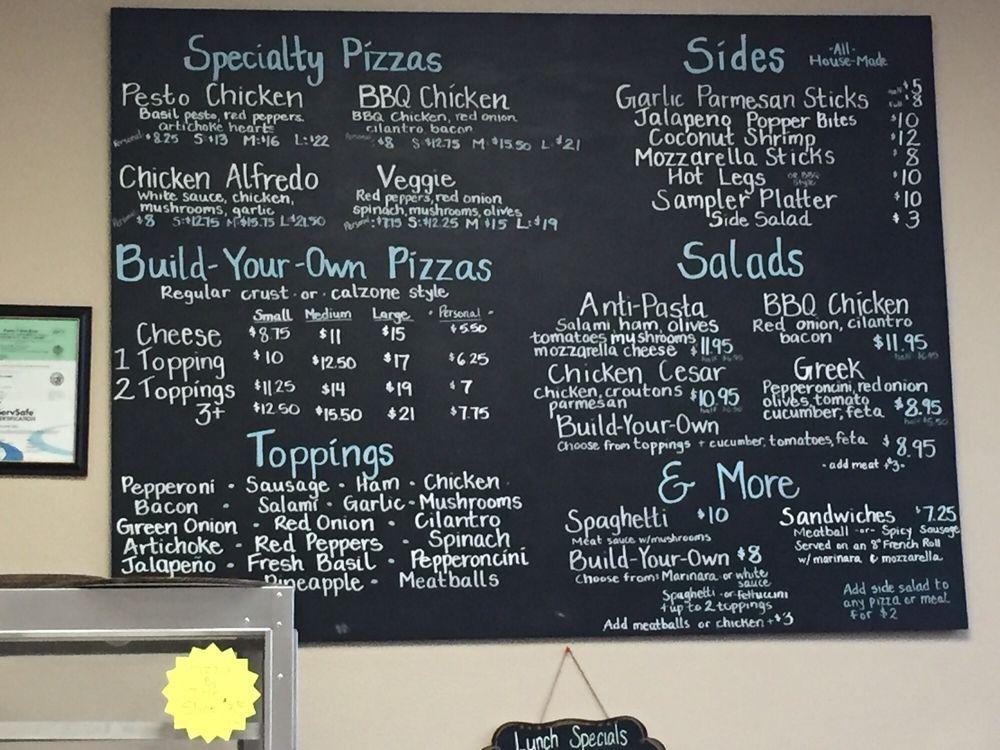 Specialty Pizzas
Pesto Chicken
Basil pesto, red peppers.
artichoke hearts
Personal $8.25 S:$13 M:$16 L:$22
BBQ Chicken
BBQ Chicken, red onion
cilantro bacon
$8 S:$12.75 M:$15.50 L:$21
Chicken Alfredo
White sauce, chicken,
mushrooms, garlic
Personal $8 S:$12.75 M:$15.75 L:$21.50
Veggie
Red peppers, red onion
spinach, mushrooms, olives
S:$12.25 M $15 L:$19
Build-Your-Own Pizzas
Regular crust·or·calzone style
Small Medium Large ·Personal·
Cheese $8.75 $11 $15 $5.50
1 Topping $10 $12.50 $17 $6.25
2 Toppings $11.25 $14 $19 $7
3+ $12.50 $15.50 $21 $7.75
Toppings
Pepperoni · Sausage · Ham · Chicken
Bacon · Salami · Garlic · Mushrooms
Green Onion · Red Onion · Cilantro
Artichoke · Red Peppers · Spinach
Jalapeño · Fresh Basil · Pepperoncini
Pineapple · Meatballs
Sides
-All-
House-Made
Garlic Parmesan Sticks half $5
full $8
Jalapeno Popper Bites $10
Coconut Shrimp $12
Mozzarella Sticks $8
Hot Legs or BBQ Style $10
Sampler Platter $10
Side Salad $3
Salads
Anti-Pasta
Salami, ham, olives
tomatoes mushrooms
mozzarella cheese $11.95
half
BBQ Chicken
Red onion, cilantro
bacon $11.95
half
Chicken Cesar
chicken, croutons
parmesan $10.95
half
Greek
Pepperoncini, red onion
olives, tomato
cucumber, feta $8.95
half
Build-Your-Own
Choose from toppings + cucumber, tomatoes, feta $8.95
- add meat +$3-
& More
Spaghetti $10
Meat sauce w/mushrooms
Build-Your-Own $8
Choose from: Marinara or white
sauce
Spaghetti -or- fettuccini
+ up to 2 toppings
Add meatballs or chicken +$3
Sandwiches $7.25
Meatball -or- Spicy Sausage
Served on an 8" French Roll
w/ marinara & mozzarella
Add side salad to
any pizza or meal
for $2
ServSafe
CERTIFICATION
Lunch Specials